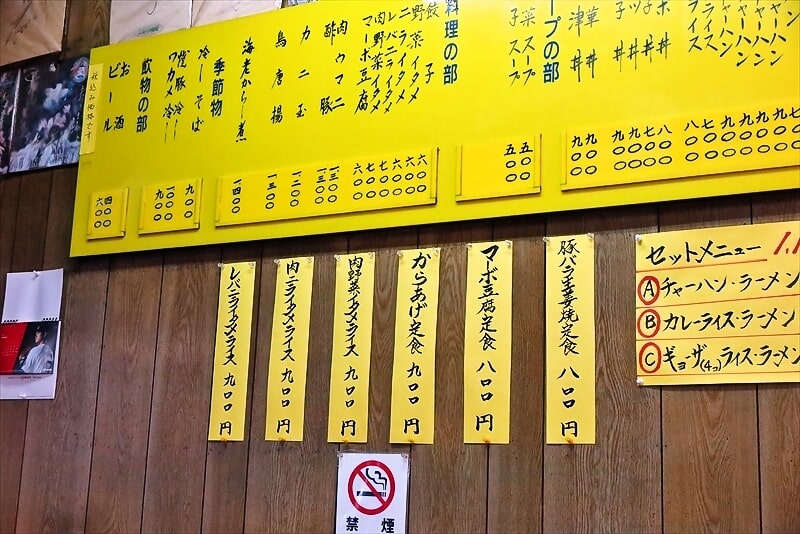 ープの部
菜スープ 五〇〇
子スープ 五〇〇
料理の部
餃子 六〇〇
野菜イタメ 六〇〇
ニライタメ 六〇〇
レバニライタメ 七〇〇
肉野菜イタメ 七〇〇
マーボ豆腐 六〇〇
肉ウマニ 一三〇〇
酢豚 一三〇〇
カニ玉 一二〇〇
鳥唐揚 一三〇〇
海老からし煮 一四〇〇
季節物
冷しそば 九〇〇
焼豚冷し 一〇〇〇
ワカメ冷し 九〇〇
飲物の部
お酒 四〇〇
ビール 六〇〇
税込み価格です
セットメニュー
Ⓐ チャーハン・ラーメン
Ⓑ カレーライス・ラーメン
Ⓒ ギョーザ(4コ)ライス・ラーメン
豚バラ生姜焼定食 八〇〇円
マーボ豆腐定食 八〇〇円
からあげ定食 九〇〇円
肉野菜イタメライス 九〇〇円
肉ニライタメライス 九〇〇円
レバニライタメライス 九〇〇円
禁煙